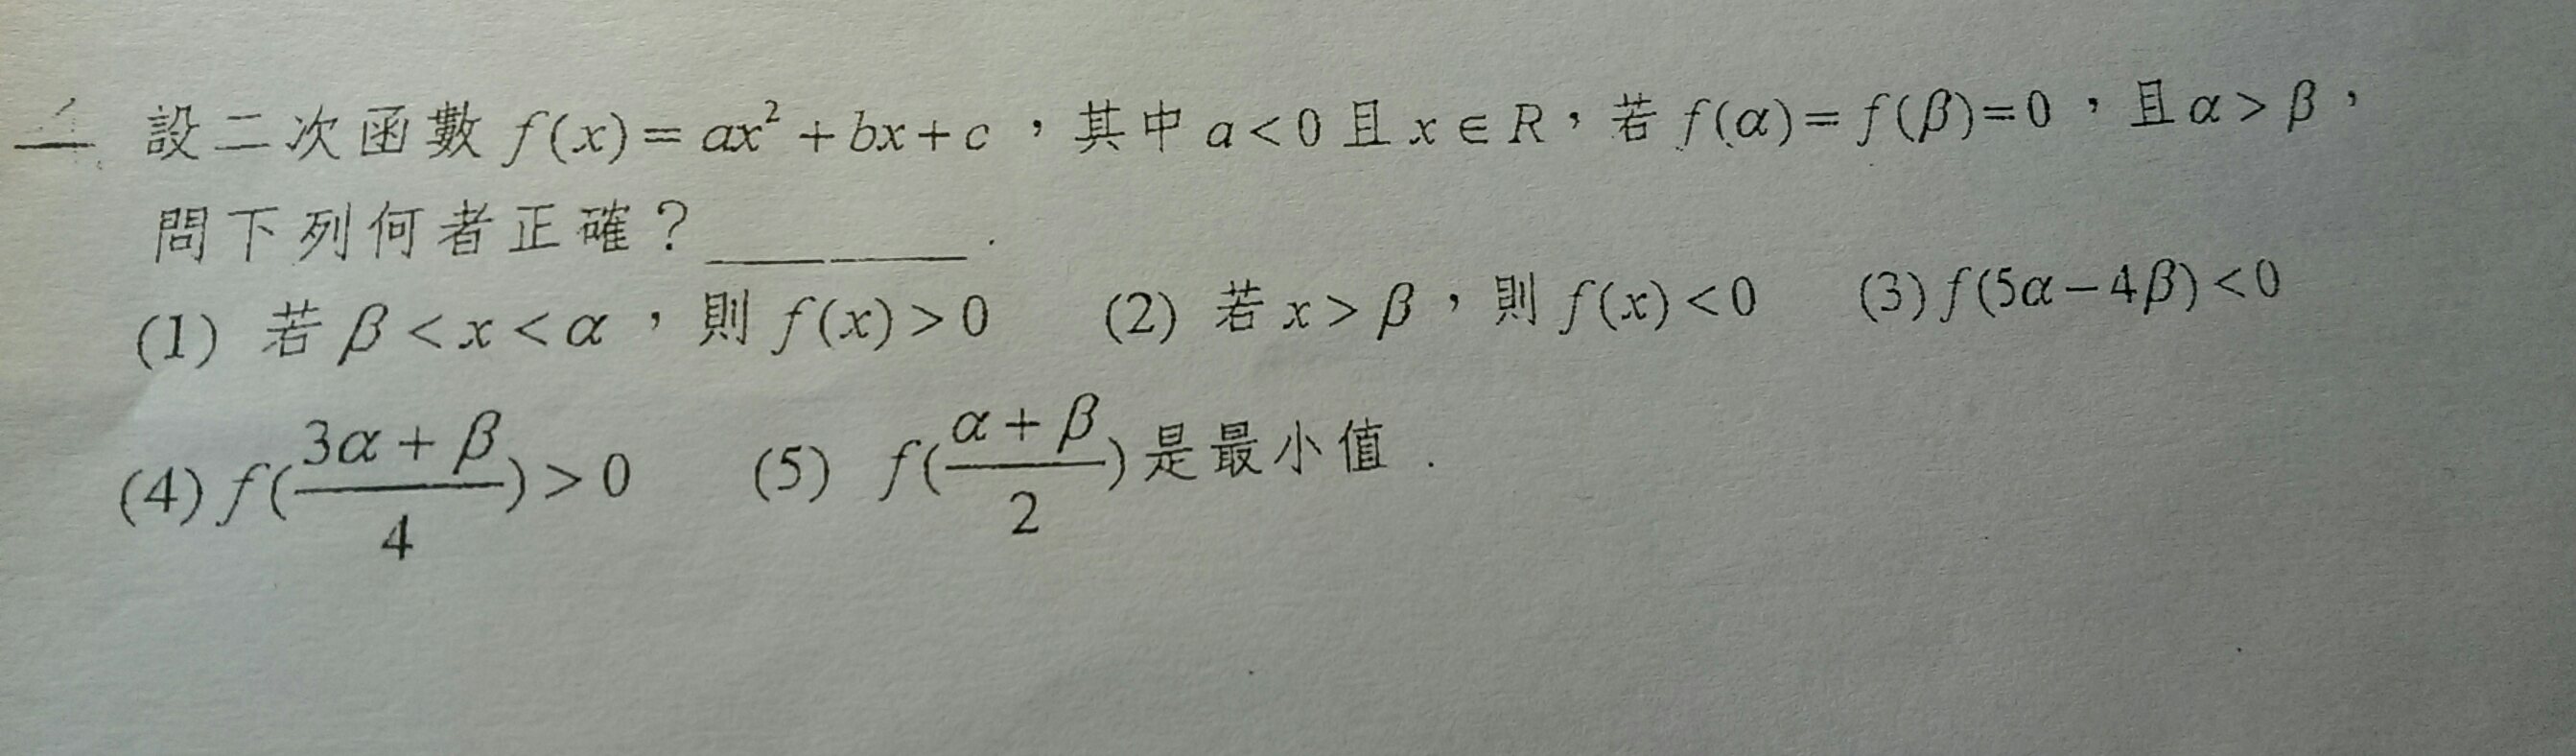 設二次函數 f(x)= ax² + bx + c ，其中 a < 0 且 x ∈ R，若 f(α)= f(β)=0 ，且α > β，
問下列何者正確？________.
(1) 若 β < x < α ，則 f(x) > 0 (2) 若 x > β ，則 f(x) < 0 (3) f(5α − 4β) < 0
(4) f((3α + β)/4) > 0 (5) f((α + β)/2) 是最小值 .